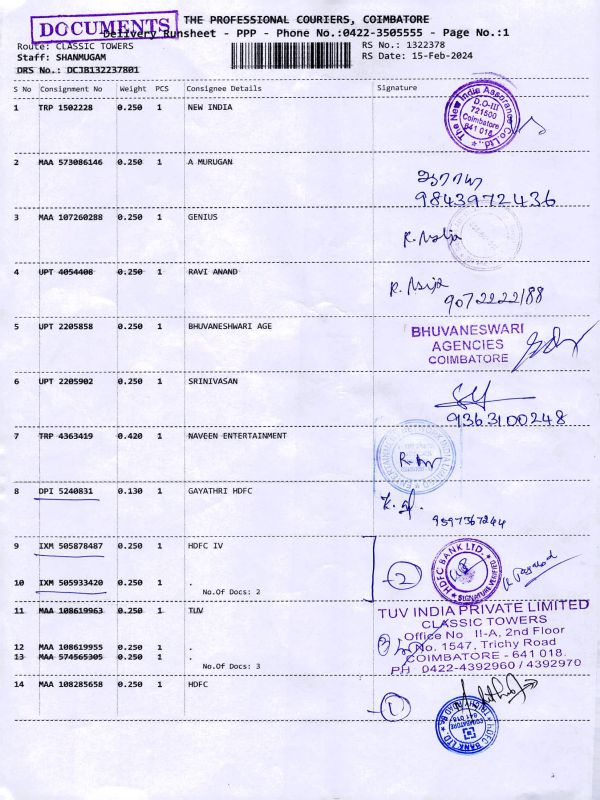 DOCUMENTS
THE PROFESSIONAL COURIERS, COIMBATORE
Delivery Runsheet - PPP - Phone No.:0422-3505555 - Page No.:1
Route: CLASSIC TOWERS
RS No.: 1322378
Staff: SHANMUGAM
RS Date: 15-Feb-2024
DRS No.: DCJB132237801
S No Consignment No Weight PCS Consignee Details Signature
1 TRP 1502228 0.250 1 NEW INDIA
The New India Assurance Co Ltd.
D.O-III
721500
Coimbatore
641 018
2 MAA 573086146 0.250 1 A MURUGAN
9843972436
3 MAA 107260288 0.250 1 GENIUS
4 UPT 4054408 0.250 1 RAVI ANAND
9072222188
5 UPT 2205858 0.250 1 BHUVANESHWARI AGE
BHUVANESWARI
AGENCIES
COIMBATORE
6 UPT 2205902 0.250 1 SRINIVASAN
9363100248
7 TRP 4363419 0.420 1 NAVEEN ENTERTAINMENT
8 DPI 5240831 0.130 1 GAYATHRI HDFC
9597367244
9 IXM 505878487 0.250 1 HDFC IV
HDFC BANK LTD.
SIGNATURE VERIFIED
2
10 IXM 505933420 0.250 1
No.Of Docs: 2
11 MAA 108619963 0.250 1 TUV
TUV INDIA PRIVATE LIMITED
CLASSIC TOWERS
Office No II-A, 2nd Floor
No. 1547, Trichy Road
COIMBATORE - 641 018.
PH 0422-4392960 / 4392970
12 MAA 108619955 0.250 1 .
13 MAA 574565305 0.250 1 .
No.Of Docs: 3
14 MAA 108285658 0.250 1 HDFC
1
HDFC BANK LTD
COIMBATORE
641 018